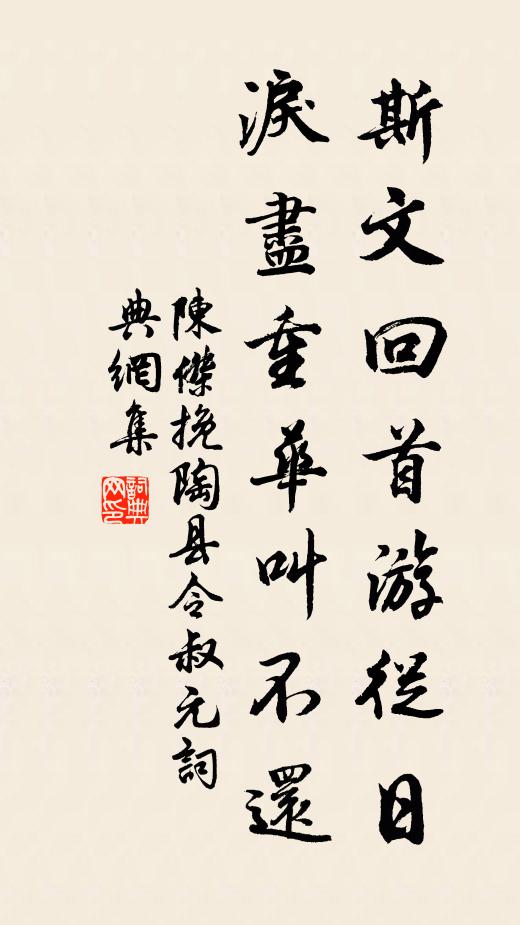 斯文回首游從日
淚盡重華叫不還
陳傑挽陶县令叔元詞
典網集
詞典网印